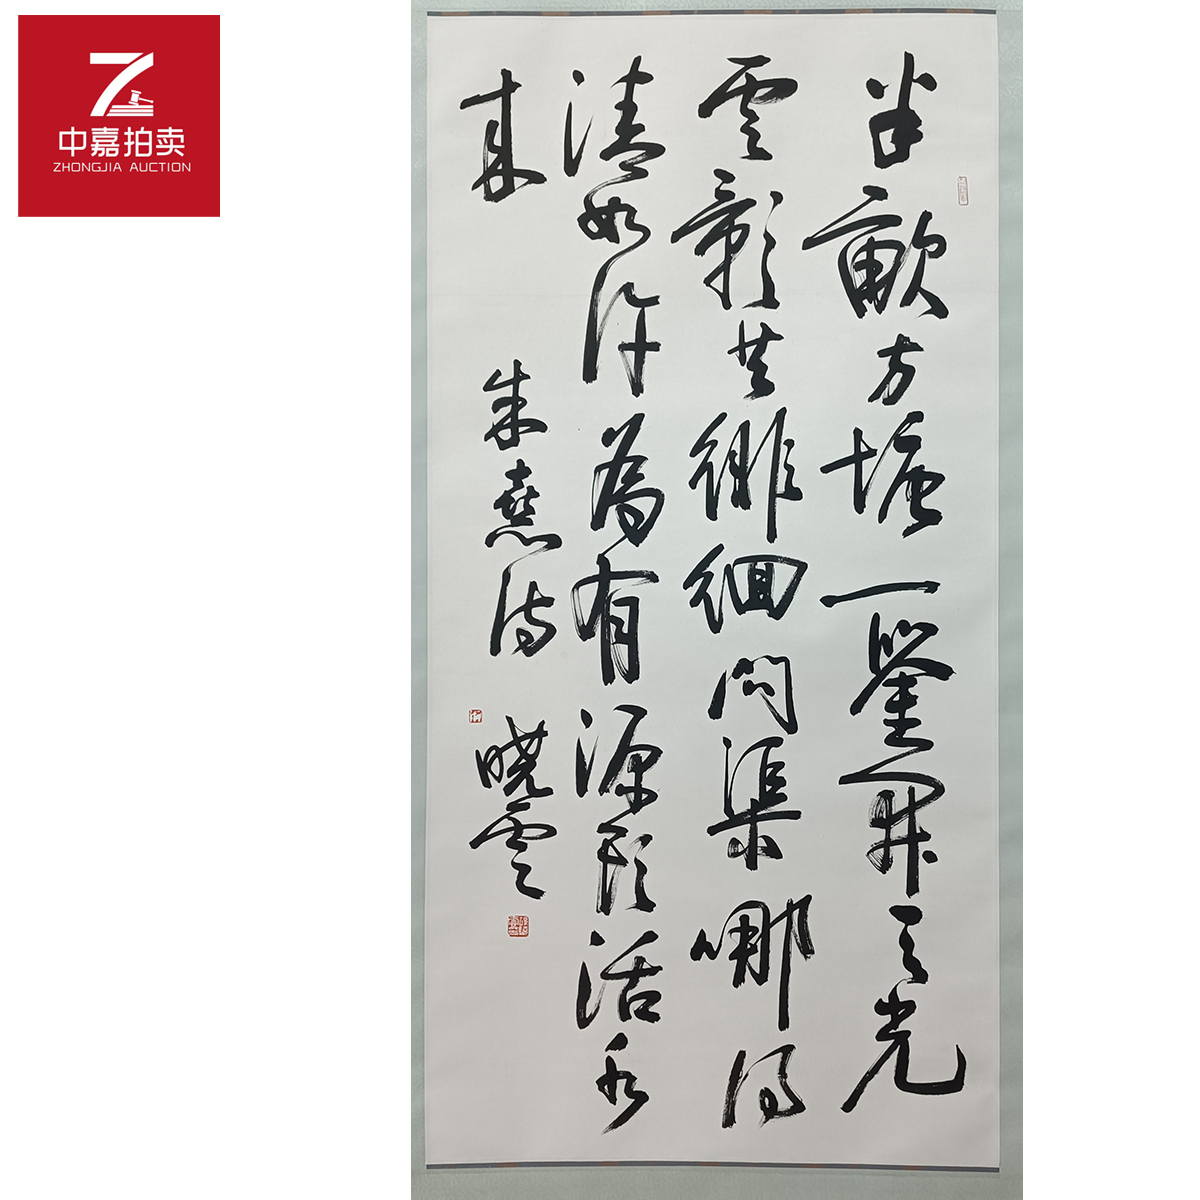 中嘉拍卖
ZHONGJIA AUCTION
半畝方塘一鑒開天光
雲影共徘徊問渠哪得
清如許為有源頭活水
來 朱熹詩 曉雲